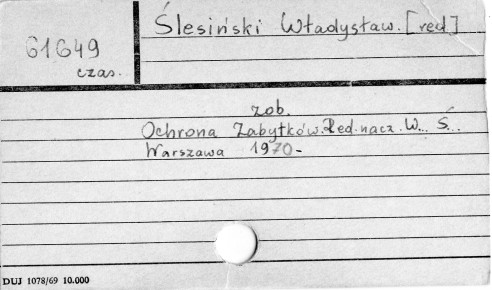 Ślesiński Władysław. [red]
61649
czas.
zob.
Ochrona Zabytków. Red. nacz. W... Ś...
Warszawa 1970-
DUJ 1078/69 10.000